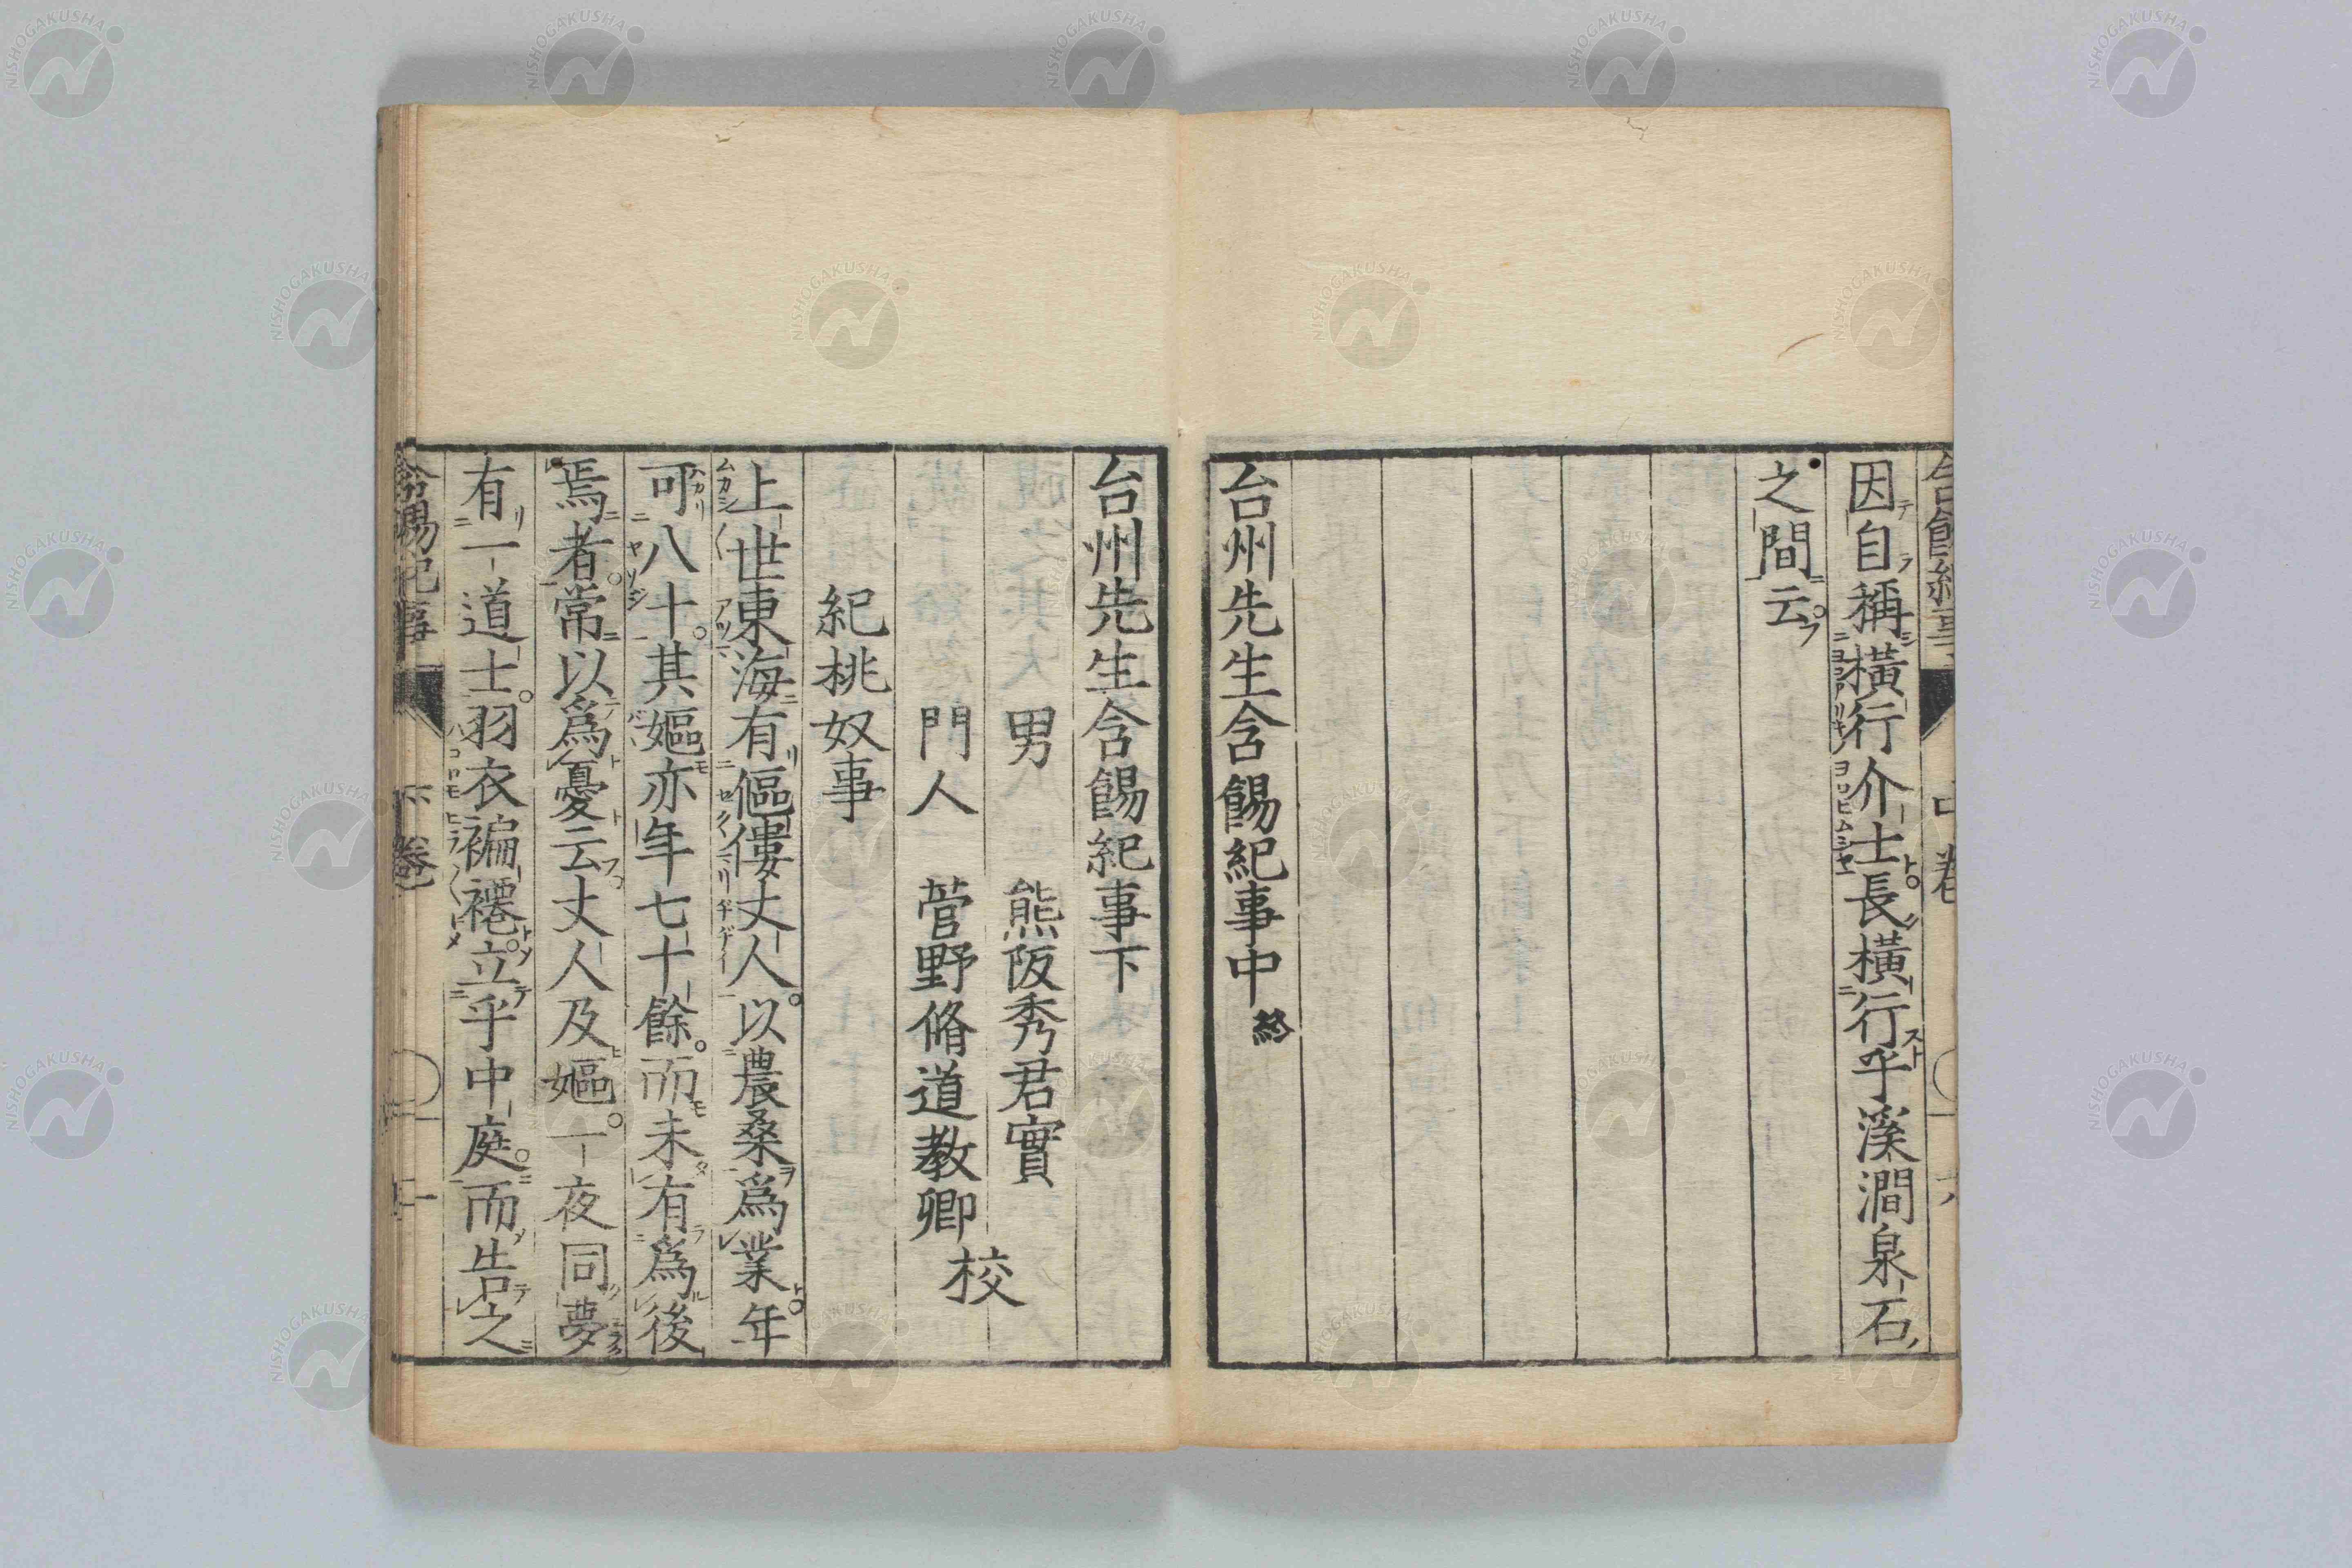 因自稱橫行介士長橫行乎溪澗泉石
之間云
台州先生含餳紀事中 終
台州先生含餳紀事下
男 熊阪秀君實
門人 菅野脩道教卿
校
紀桃奴事
上世東海有傴僂丈人以農桑爲業年
可八十其嫗亦年七十餘而未有爲後
焉者常以爲憂云丈人及嫗一夜同夢
有一道士羽衣褊褼立乎中庭而告之
NISHOGAKUSHA